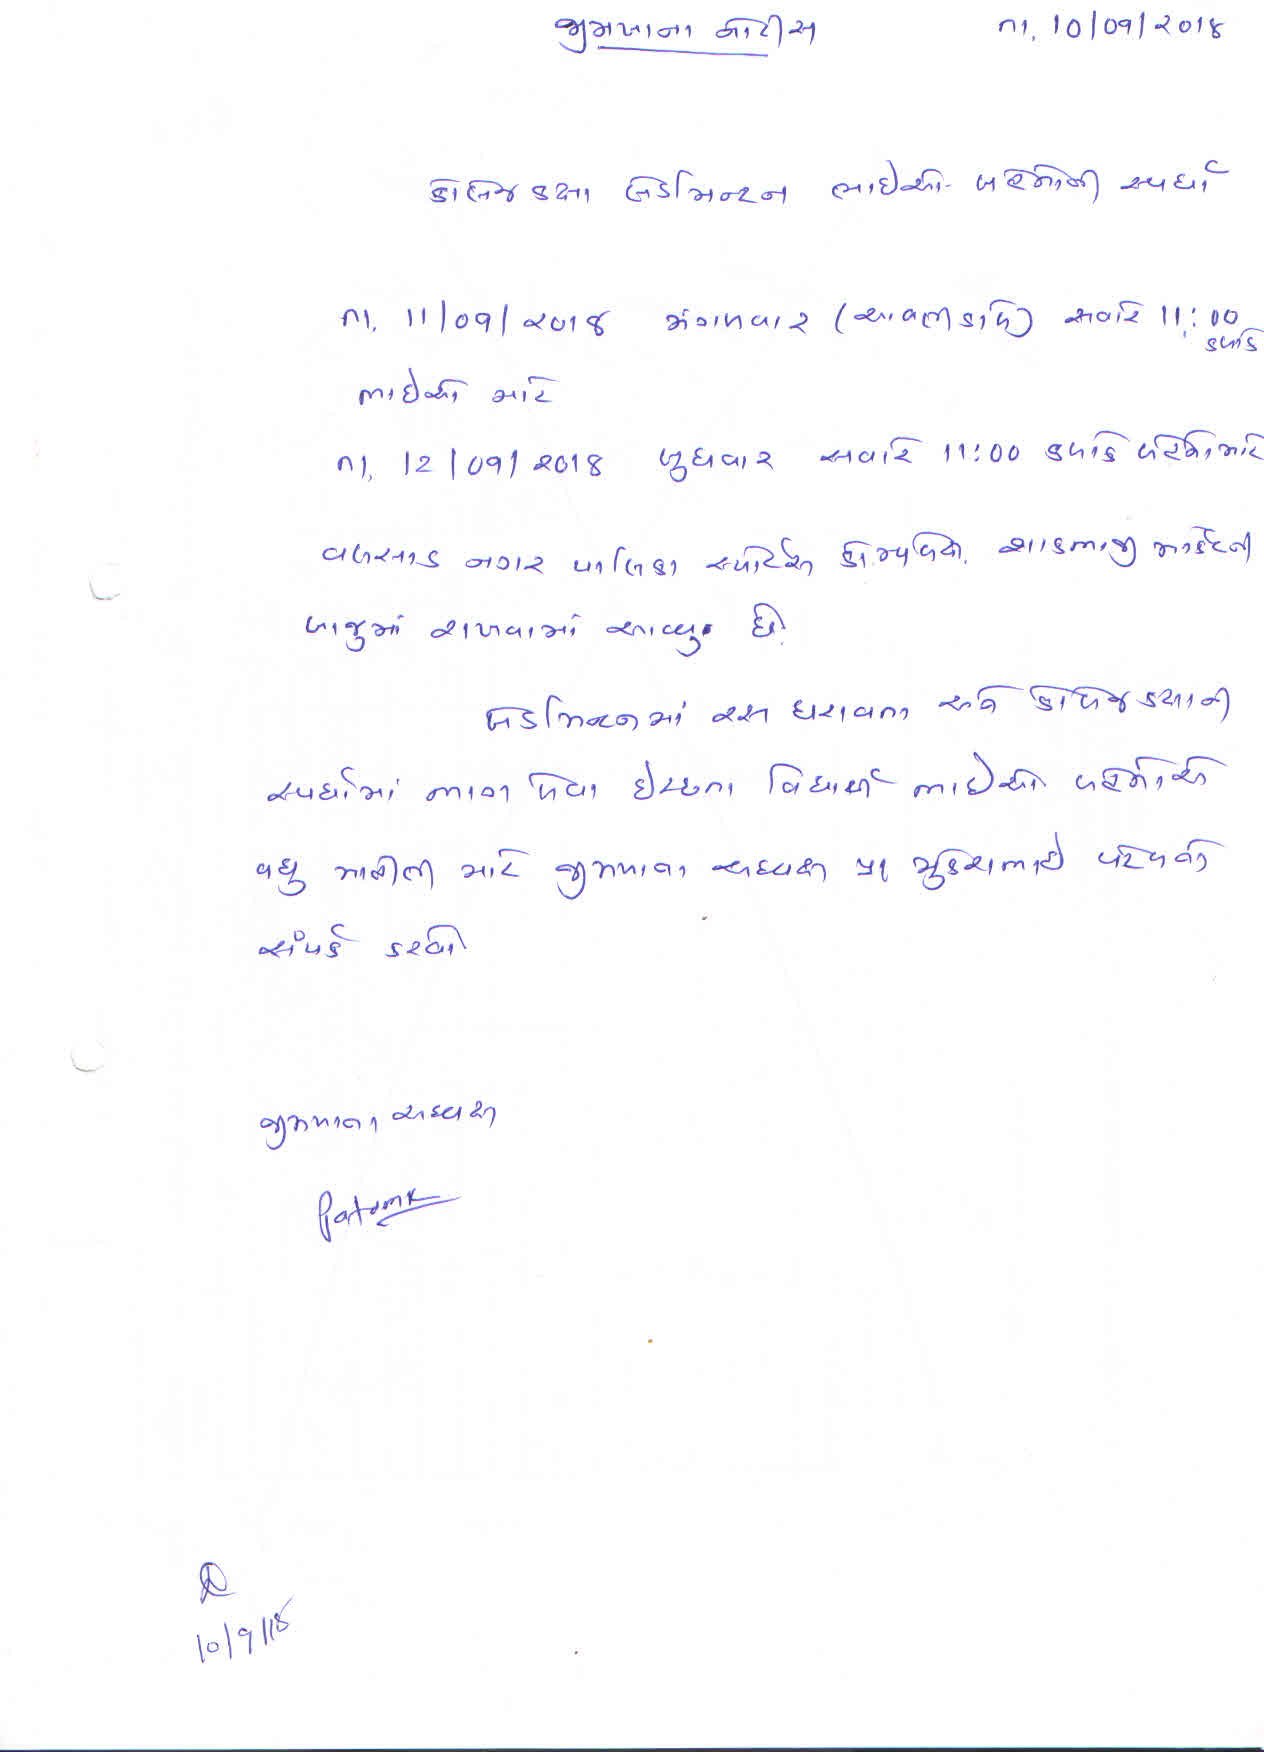 જીમખાના નોટીસ તા. 10/09/2018
કોલેજ કક્ષા બેડમિન્ટન ભાઈઓ બહેનોની સ્પર્ધા
તા. 11/09/2018 મંગળવાર (આવતીકાલે) સવારે 11:00 કલાકે
ભાઈઓ માટે
તા. 12/09/2018 બુધવાર સવારે 11:00 કલાકે બહેનો માટે
વલસાડ નગર પાલિકા સ્પોર્ટસ કોમ્પલેક્ષ. શાકભાજી માર્કેટની
બાજુમાં રાખવામાં આવ્યુ છે.
બેડમિન્ટનમાં રસ ધરાવતા અને કોલેજ કક્ષાની
સ્પર્ધામાં ભાગ લેવા ઈચ્છતા વિદ્યાર્થી ભાઈઓ બહેનોએ
વધુ માહીતી માટે જીમખાના અધ્યક્ષ પ્રા મુકેશભાઈ પટેલનો
સંપર્ક કરવો
જીમખાના અધ્યક્ષ
10/9/18